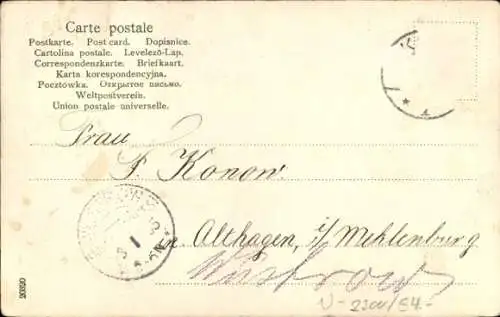 Carte postale
Postkarte. Post card. Dopisnice.
Cartolina postale. Levelező-Lap.
Correspondenzkarte. Briefkaart.
Karta korespondencyjna.
Pocztówka. Открытое письмо.
Weltpostverein.
Union postale universelle.
Frau
F. Konow
in Althagen, i/ Meklenburg
Wustrow
20820